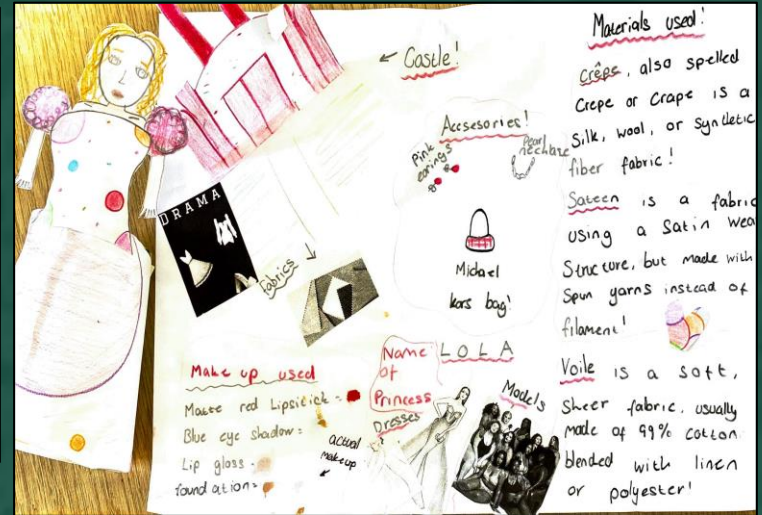 ← Castle!
Accsesories!
Pink
earings
Pearl
necklace
Michael
kors bag!
DRAMA
fabrics
Make up used
Matte red Lipstick =
Blue eye shadow =
Lip gloss =
foundation =
actual
makeup
Name
of
Princess
LOLA
Dresses
Models
Materials used!
crêpe, also spelled
Crepe or Crape is a
Silk, wool, or Synthetic
fiber fabric!
Sateen is a fabric
using a Satin Wea
Structure, but made with
Spun yarns instead of
filament!
Voile is a soft,
Sheer fabric, usually
made of 99% cotton
blended with linen
or polyester!